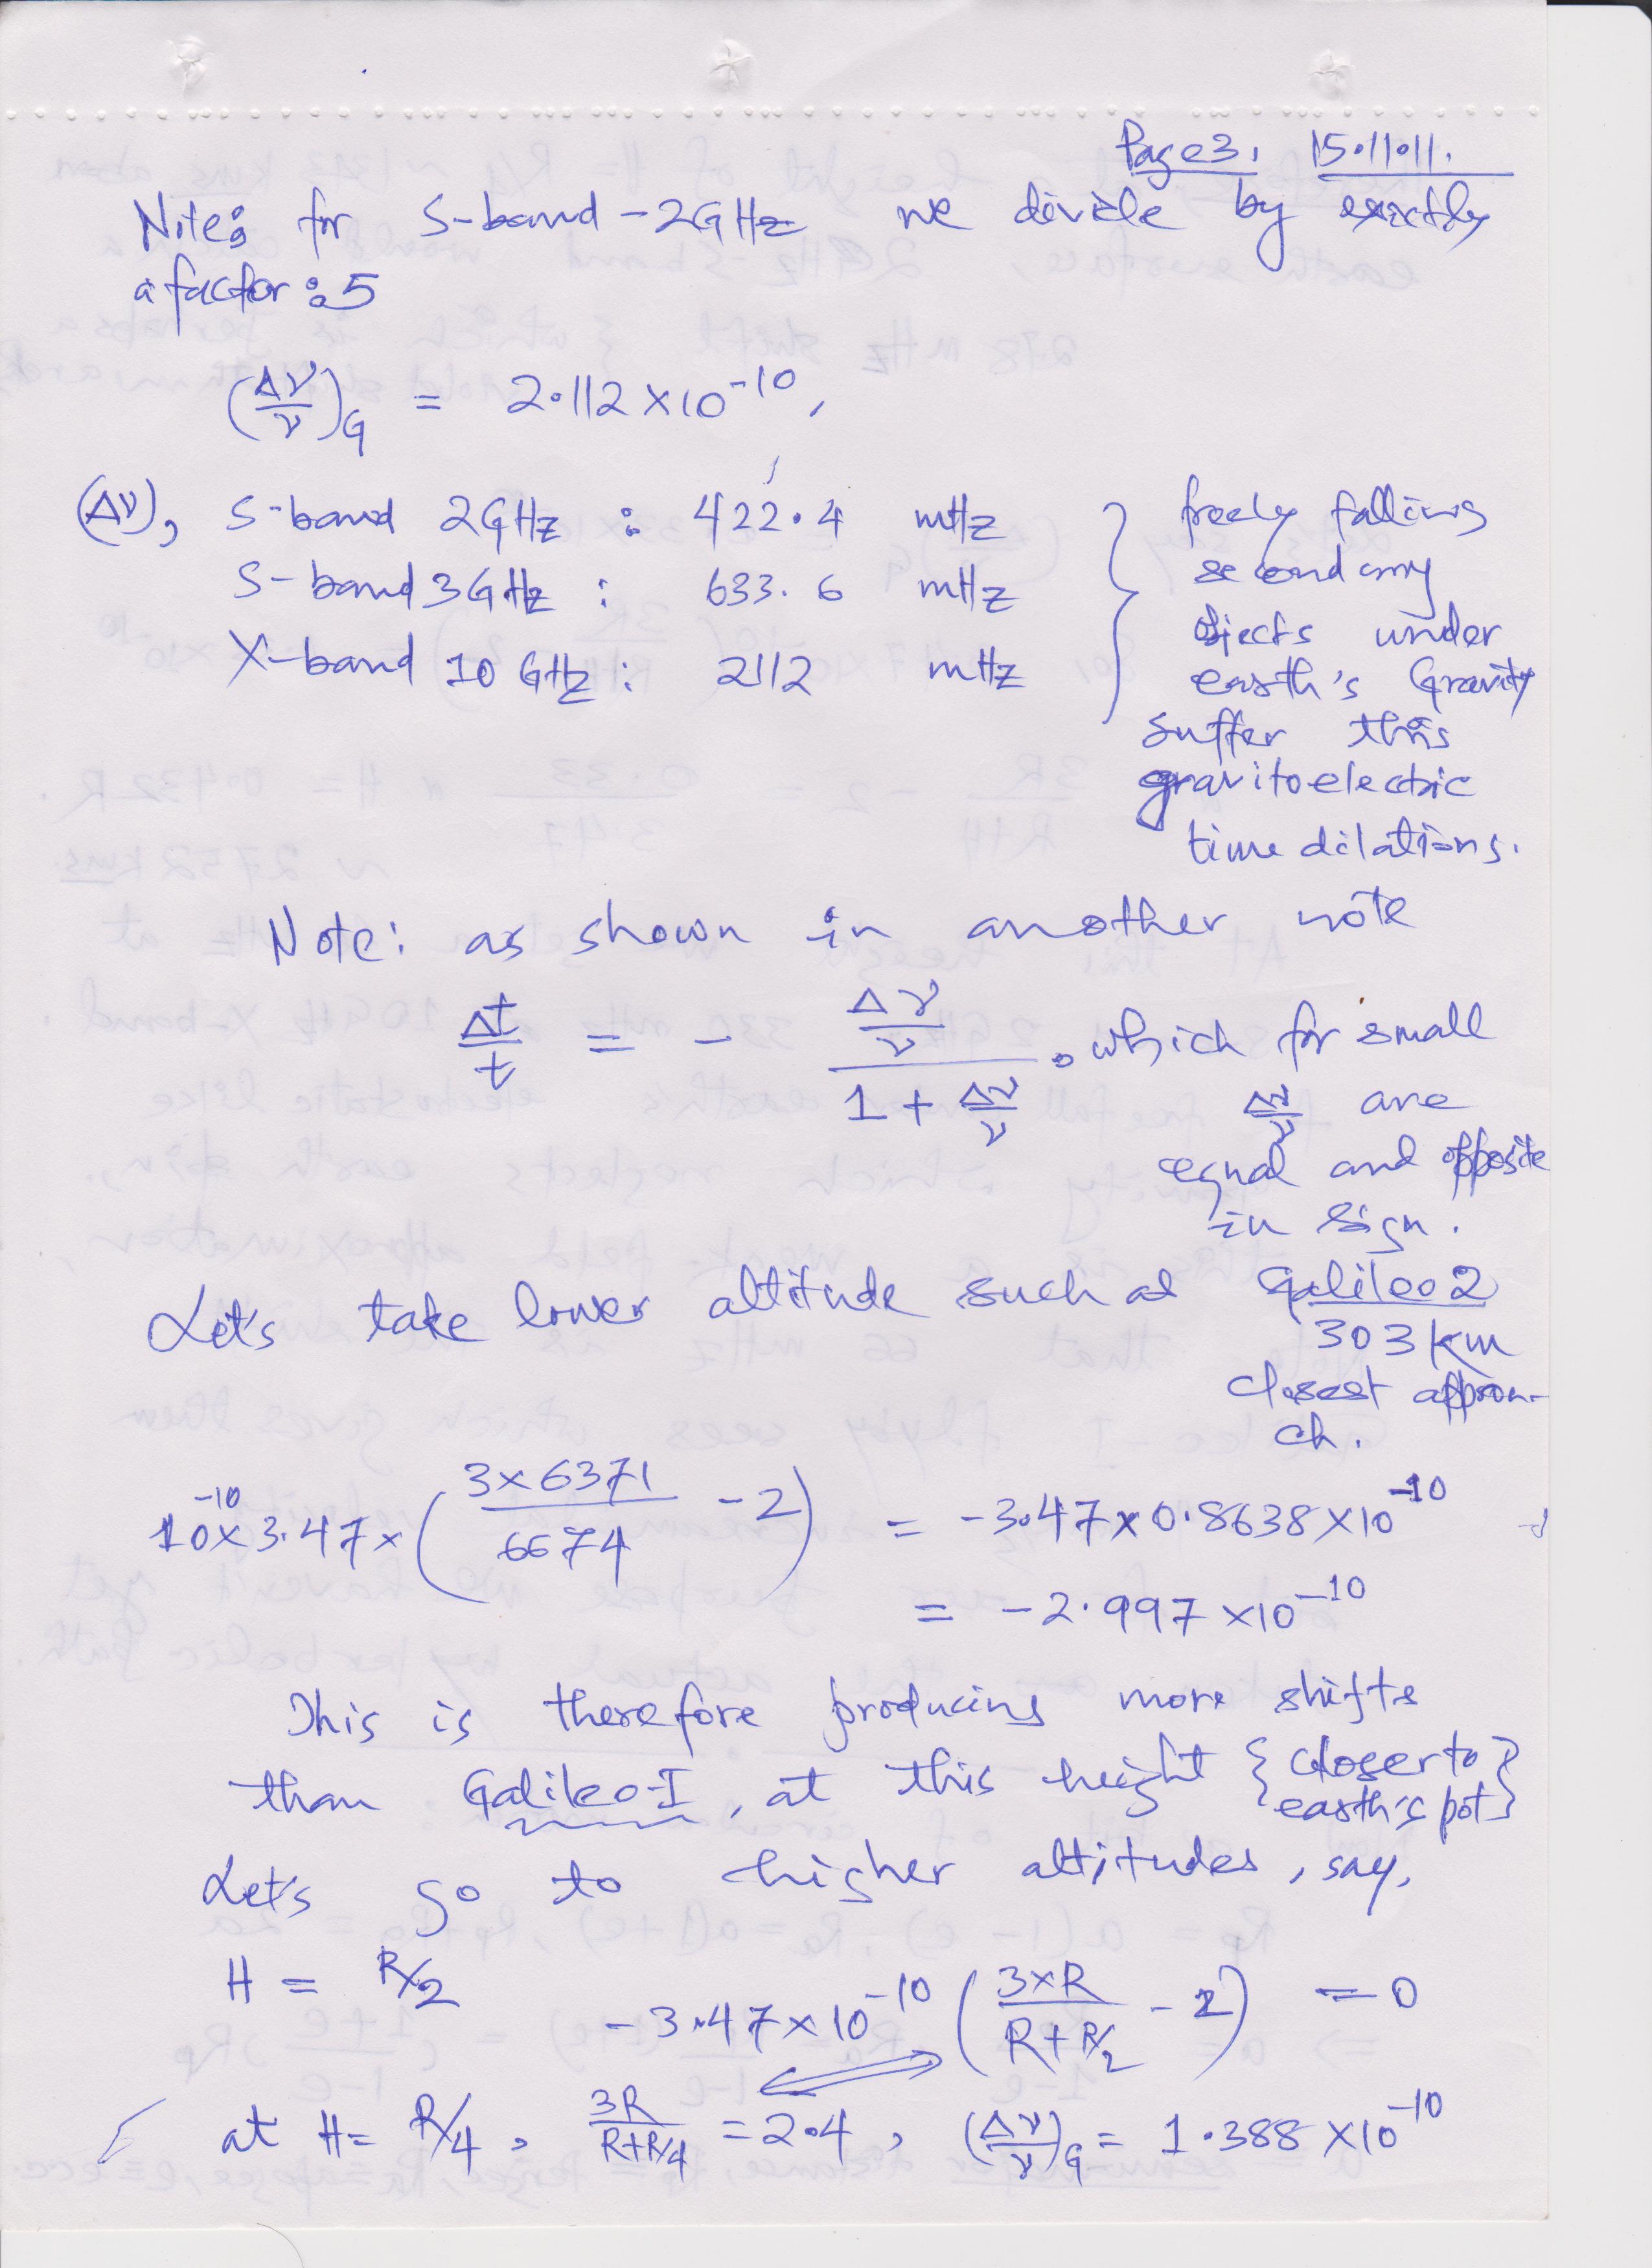 Page 3, 15.11.11.
Note: for S-band - 2GHz we divide by exactly
a factor : 5
(Δν/ν)G = 2.112 × 10^-10,
(Δν), S-band 2GHz : 422.4 mHz
S-band 3GHz : 633.6 mHz
X-band 10 GHz : 2112 mHz
} freely falling
secondary
objects under
earth's Gravity
suffer this
gravitoelectric
time dilations.
Note: as shown in another note
Δt/t = - (Δν/ν)/(1 + Δν/ν). which for small
Δν/ν are
equal and opposite
in sign.
Let's take lower altitude such as Galileo 2
303 km
closest approa-
ch.
10^-10 × 3.47 × (3×6371/6674 - 2) = -3.47 × 0.8638 × 10^-10
= -2.997 × 10^-10
This is therefore producing more shifts
than Galileo-I, at this height {closer to
earth's pot}
Let's go to higher altitudes, say,
H = R/2
-3.47 × 10^-10 (3×R/(R+R/2) - 2) = 0
at H = R/4, 3R/(R+R/4) = 2.4, (Δν/ν)G = 1.388 × 10^-10